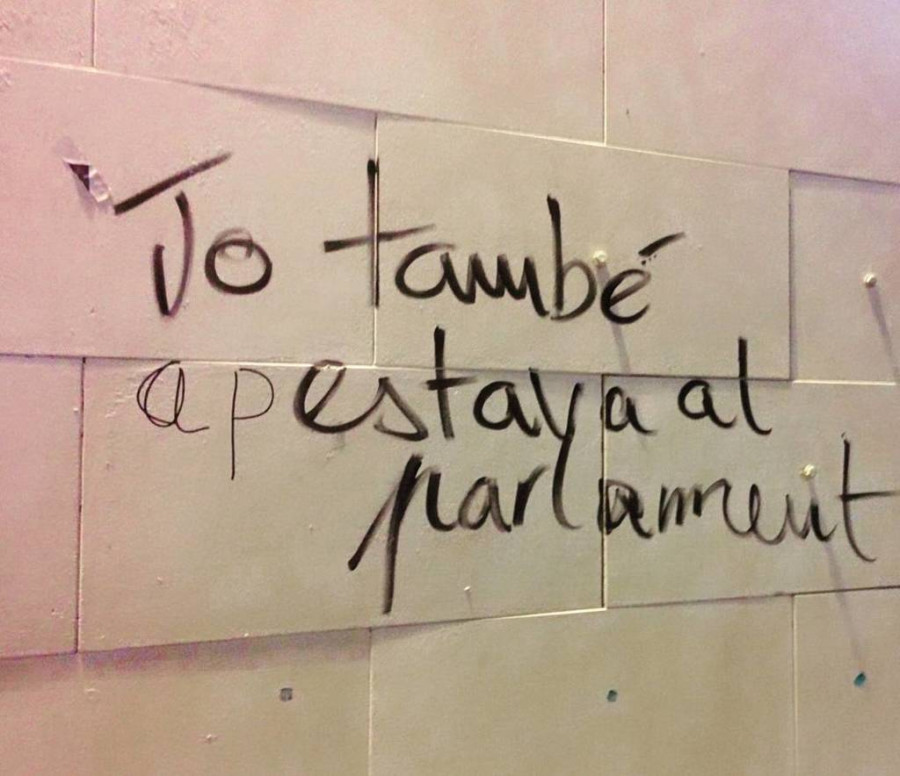 Jo també
apestava al
parlament